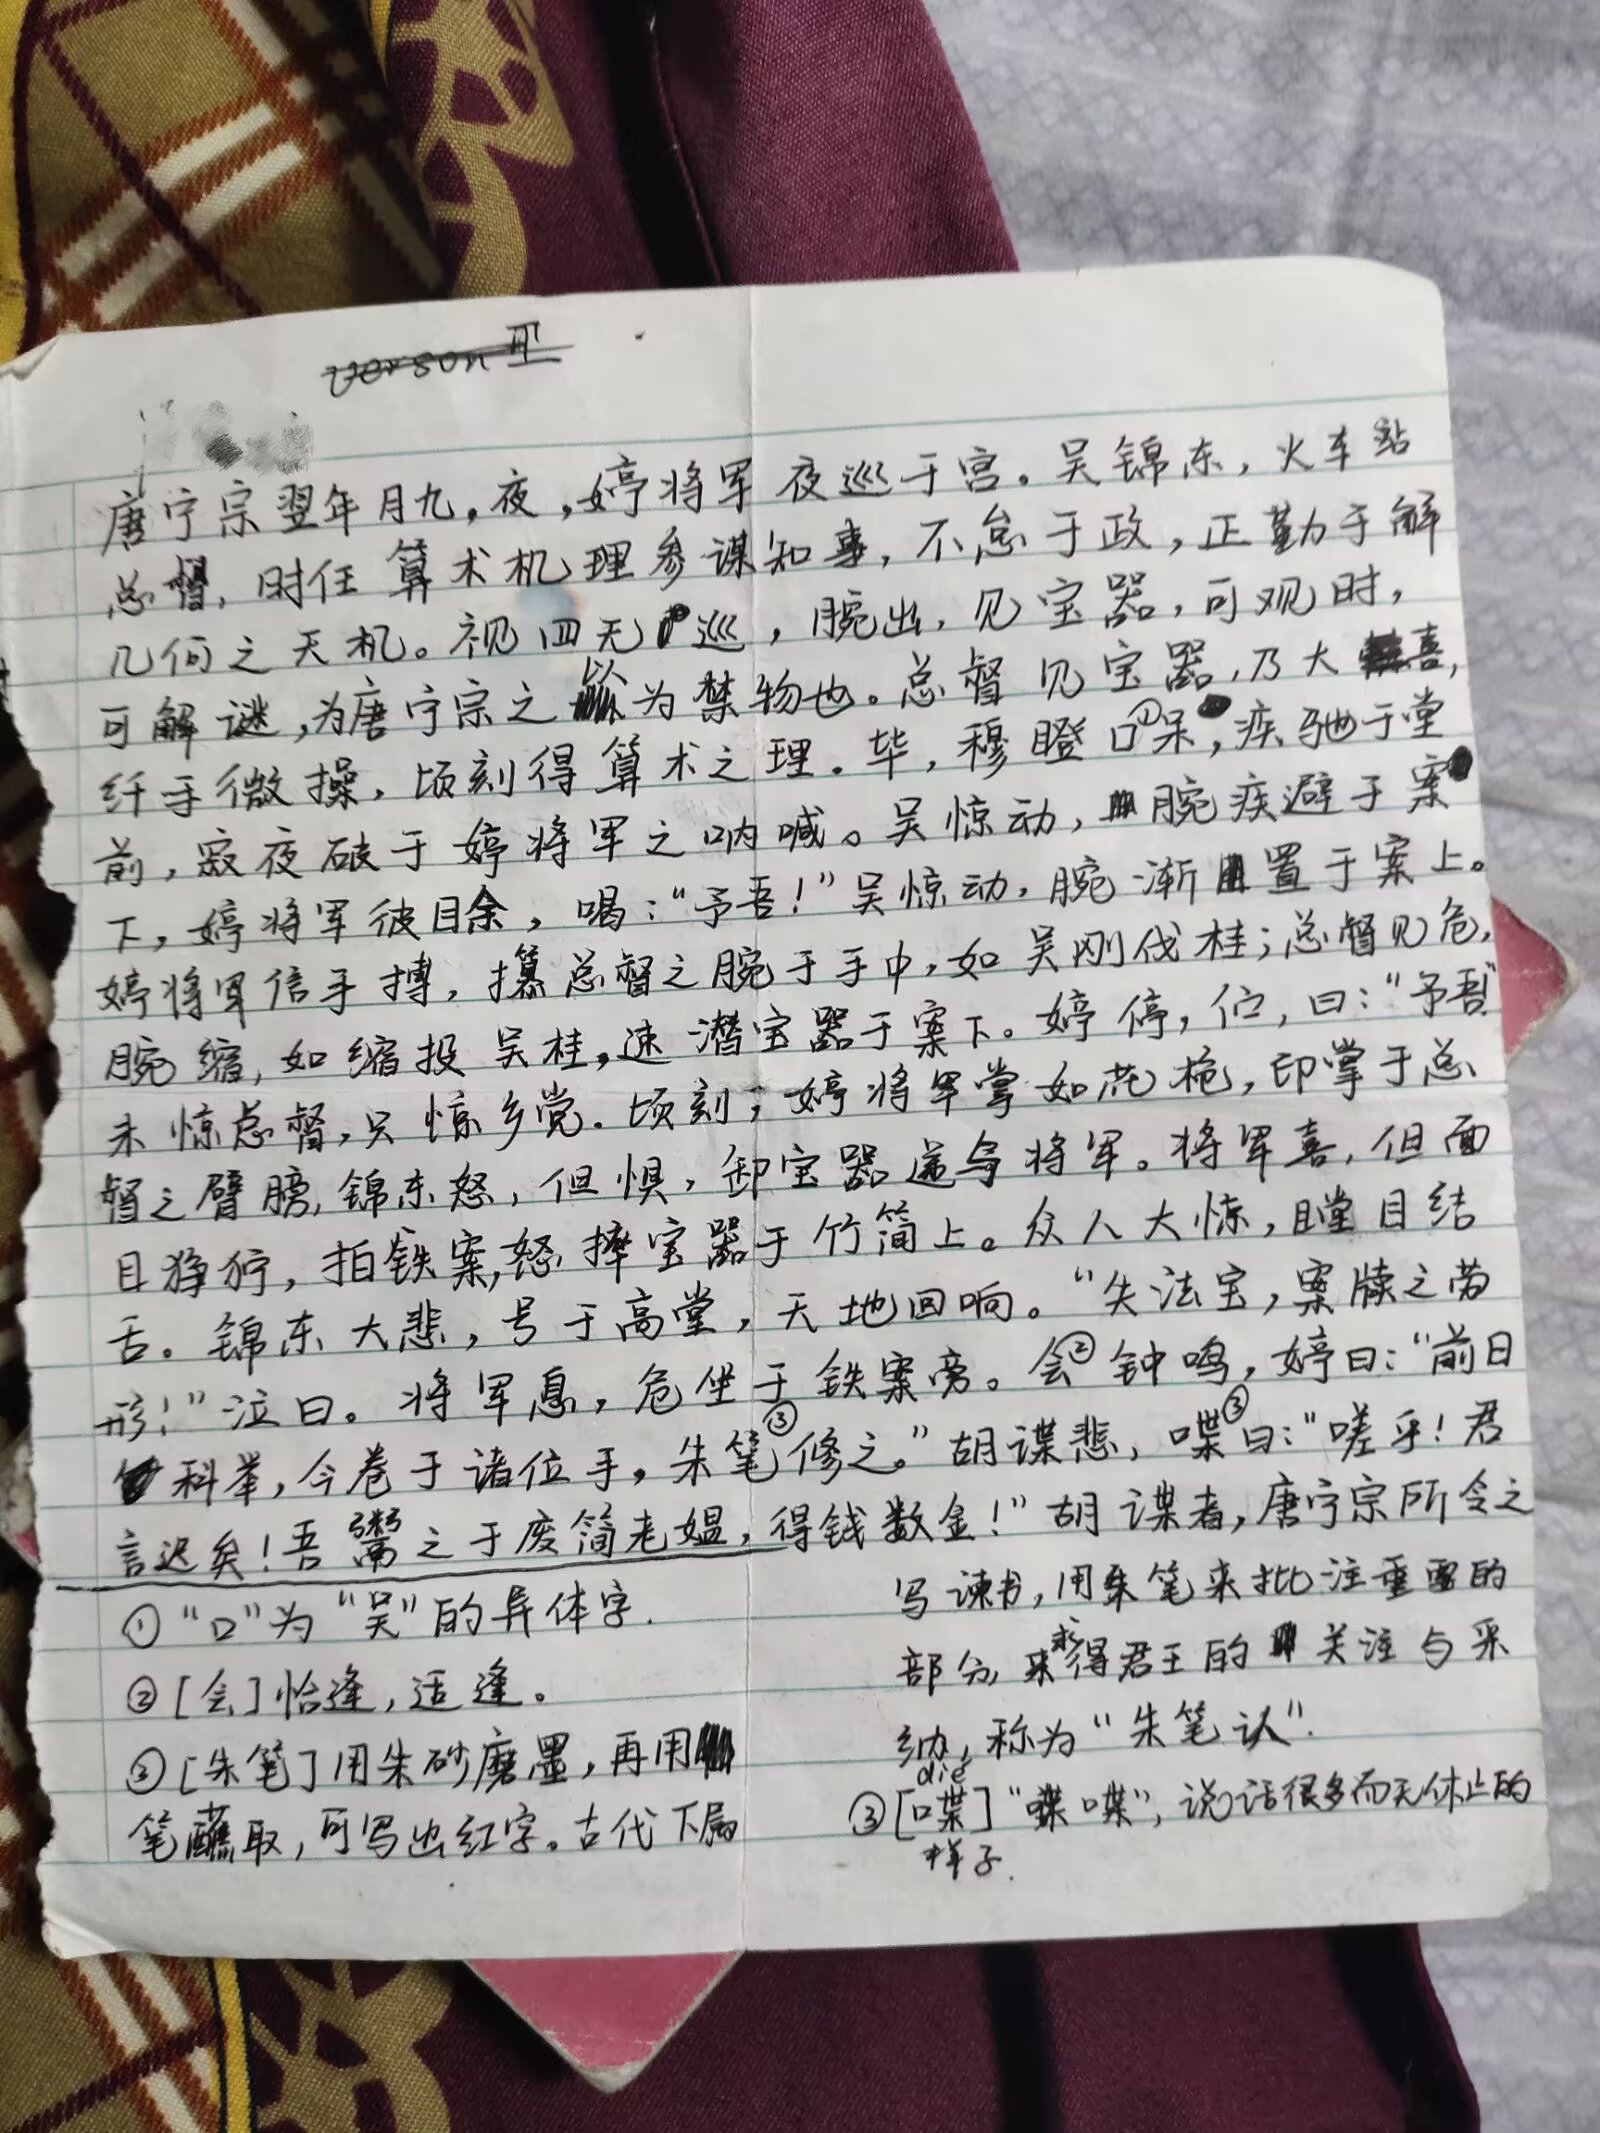 Verson III
唐宁宗翌年月九,夜,婷将军夜巡于宫。吴锦东,火车站
总督,时任算术机理参谋知事,不怠于政,正勤于解
几何之天机。视四无巡,腕出,见宝器,可观时,
可解谜,为唐宁宗之以为禁物也。总督见宝器,乃大喜,
纤手微操,顷刻得算术之理。毕,穆瞪口①呆,疾驰于堂
前,寂夜破于婷将军之呐喊。吴惊动,腕疾避于案
下,婷将军彼目余,喝:“予吾!”吴惊动,腕渐置于案上。
婷将军信手搏,攥总督之腕于手中,如吴刚伐桂;总督见危,
腕缩,如缩投吴桂,速潜宝器于案下。婷停,伫,曰:“予吾”
未惊总督,只惊乡党.顷刻,婷将军掌如花枪,印掌于总
督之臂膀,锦东怒,但惧,卸宝器递与将军。将军喜,但面
目狰狞,拍铁案,怒摔宝器于竹简上。众人大惊,瞠目结
舌。锦东大悲,号于高堂,天地回响。“失法宝,案牍之劳
形!”泣曰。将军息,危坐于铁案旁。会②钟鸣,婷曰:“前日
科举,今卷于诸位手,朱笔③修之。”胡谍悲,喋③曰:“嗟乎!君
言迟矣!吾粥之于废简老媪,得钱数金!”胡谍者,唐宁宗所令之
①“口”为“吴”的异体字.
②[会]恰逢,适逢。
③[朱笔]用朱砂磨墨,再用
笔蘸取,可写出红字。古代下属
写谏书,用朱笔来批注重要的
部分,来求得君王的关注与采
纳,称为“朱笔认”.
dié
③[喋]“喋喋”,说话很多而无休止的
样子.